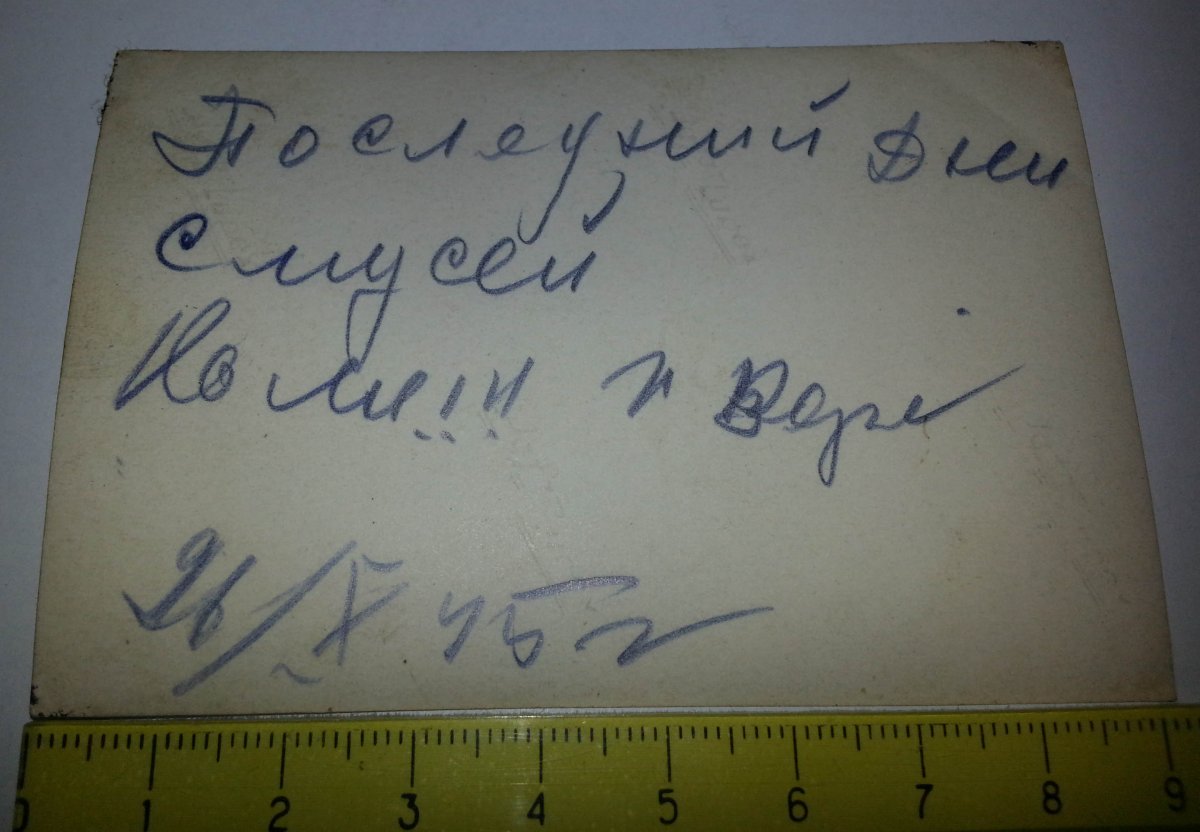 Последний Дни
с мусей
Коми!!! и Варе
26/X 45 г
0 1 2 3 4 5 6 7 8 9